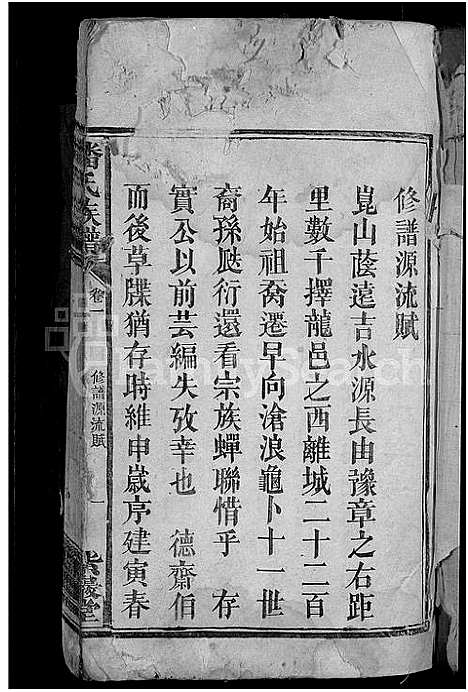 修譜源流賦
崑山蔭遠吉水源長由豫章之右距
里數千擇龍邑之西離城二十二百
年始祖喬遷早向滄浪龜卜十一世
裔孫慶衍還看宗族蟬聯惜乎　存
實公以前芸編失攷幸也　德齋伯
而後草牒猶存時維申歲序建寅春
潘氏族譜
卷一
修譜源流賦
一
堂
FamilySearch